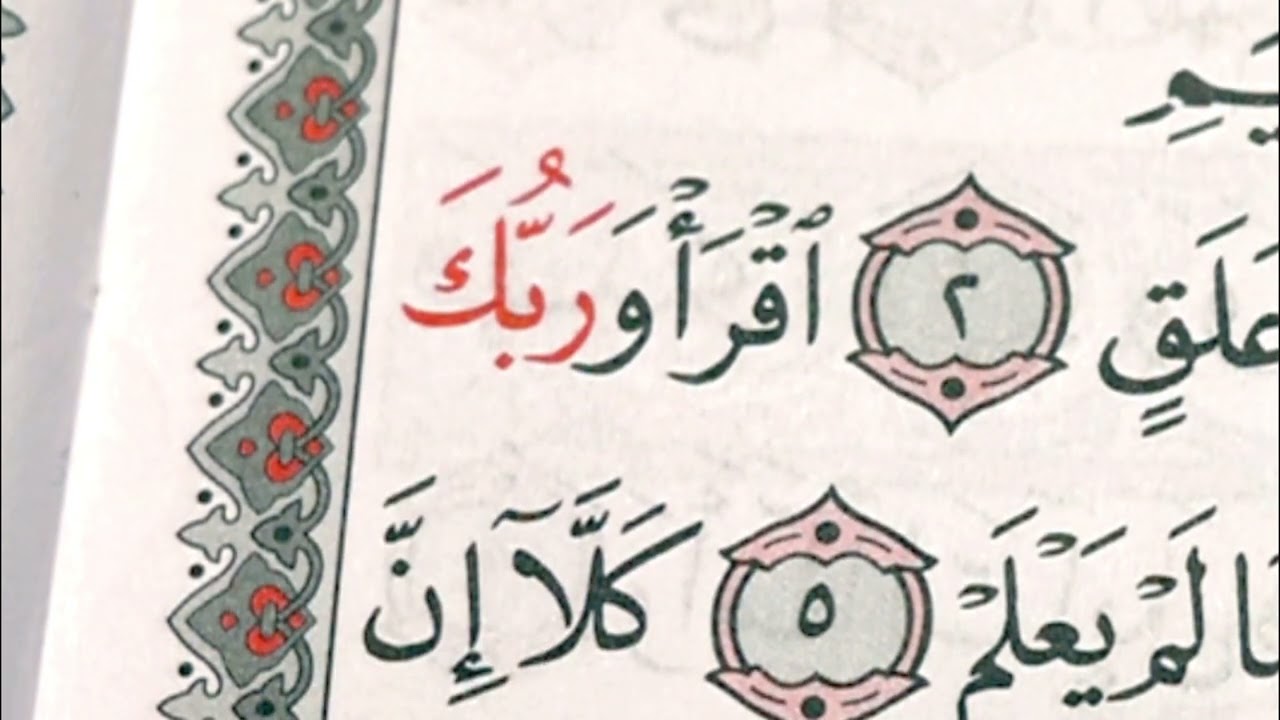 عَلَقٍ ٢ ٱقْرَأْ وَرَبُّكَ
لَمْ يَعْلَمْ ٥ كَلَّآ إِنَّ